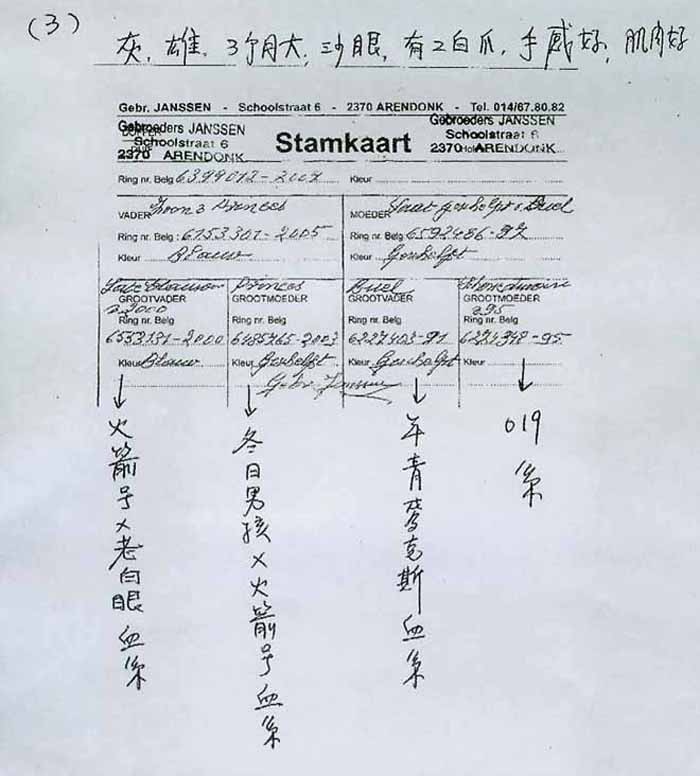 (3)
灰、雄、3个月大，沙眼，有2白爪，手感好，肌肉好
Gebr. JANSSEN - Schoolstraat 6 - 2370 ARENDONK - Tel. 014/67.80.82
Gebroeders JANSSEN
Schoolstraat 6
2370 ARENDONK
Stamkaart
Gebroeders JANSSEN
Schoolstraat 6
2370 ARENDONK
Ring nr. Belg 6399012-2007 Kleur
VADER Zoon Princes
Ring nr. Belg : 6153301-2005
Kleur Blauw
MOEDER
Ring nr. Belg 6592486-97
Kleur Geschelpt
GROOTVADER
2000
Ring nr. Belg
6533131-2000
Kleur Blauw
Princes
GROOTMOEDER
Ring nr. Belg
6485765-2003
Kleur Geschelpt
GROOTVADER
Ring nr. Belg
6227403-91
Kleur Geschelpt
GROOTMOEDER
Ring nr. Belg
6224348-95
Kleur
Gebr. Janssen
火箭号×老白眼血系
冬日男孩×火箭号血系
年青麦克斯血系
019系